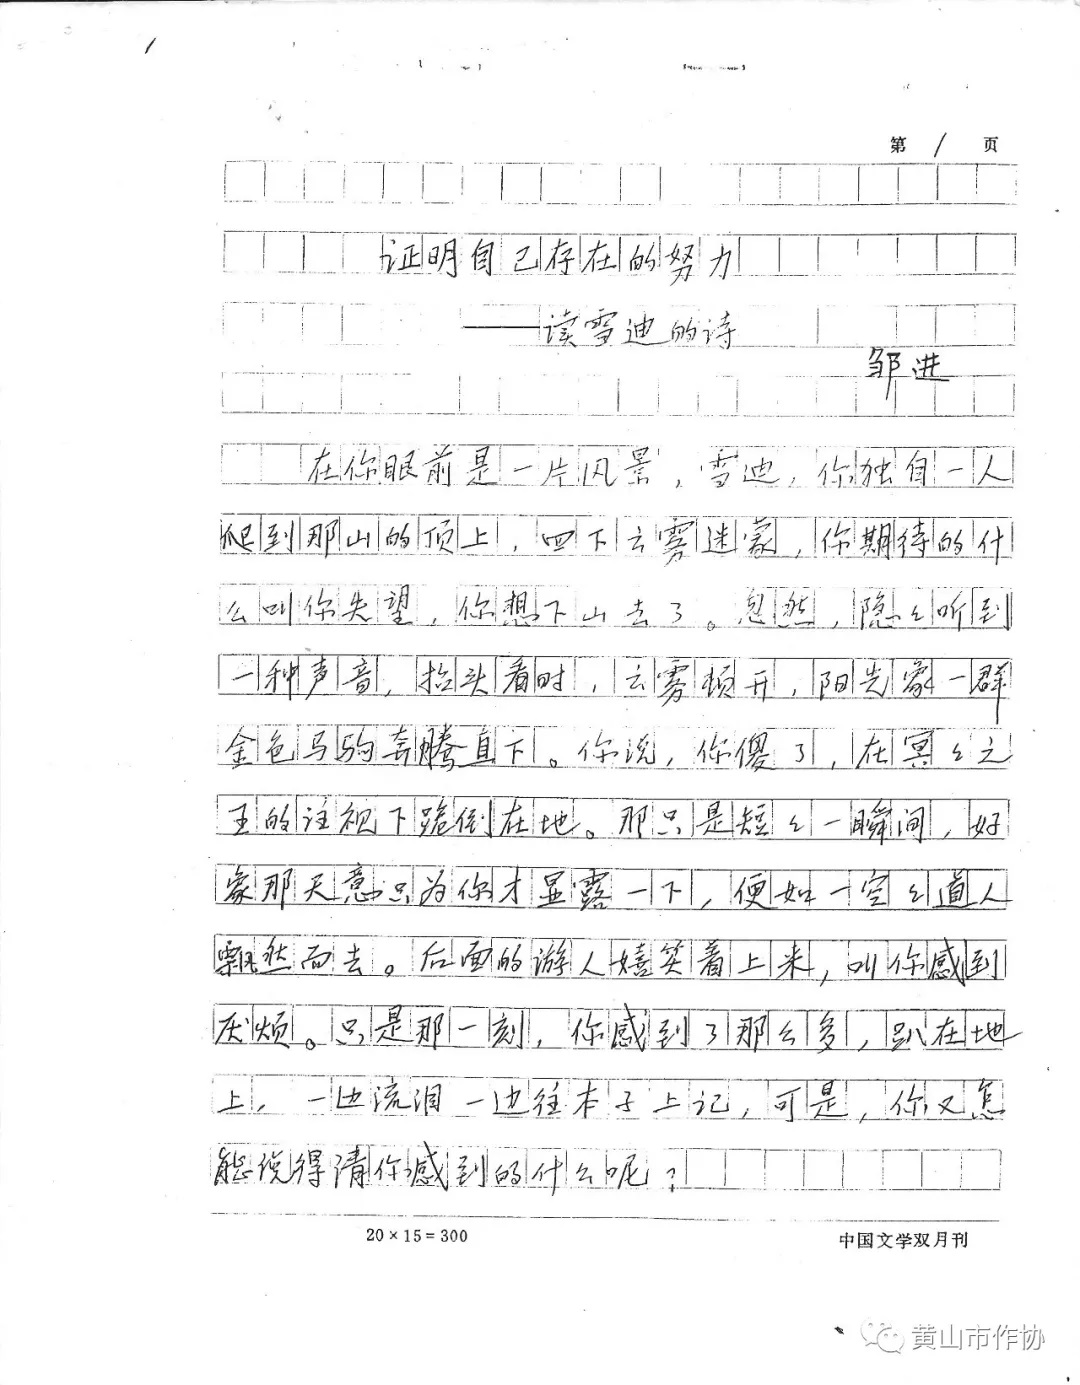 第 1 页
证明自己存在的努力
——读雪迪的诗
邹进
在你眼前是一片风景，雪迪，你独自一人
爬到那山的顶上，四下云雾迷蒙，你期待的什
么叫你失望，你想下山去了。忽然，隐々听到
一种声音，抬头看时，云雾顿开，阳光象一群
金色马驹奔腾直下。你说，你傻了，在冥々之
王的注视下跪倒在地。那只是短々一瞬间，好
象那天意只为你才显露一下，便如一空々道人
飘然而去。后面的游人嬉笑着上来，叫你感到
厌烦。只是那一刻，你感到了那么多，趴在地
上，一边流泪一边往本子上记，可是，你又怎
能说得清你感到的什么呢？
20×15=300
中国文学双月刊
黄山市作协